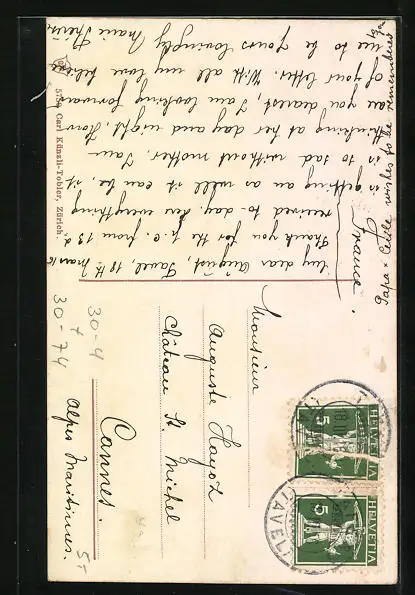 My dear August, Tavel, 18th March
Thank you for the p.c. from 13 d.
received to day. Lets everything
is getting as well as can be, it
is to sad without mother, I am
thinking at her day and night. How
are you dearest, I am looking forward
of your letter. With all my love believe
me to be yours lovingly Marie
Papa & Cécile wishes to be remembered
5756 Carl Künzli-Tobler, Zürich.
Monsieur
Auguste Hayoz
Château St. Michel
Cannes.
Alpes Maritimes.
France.
30-4
30-74
5-
HELVETIA
5
HELVETIA
5
TAVEL